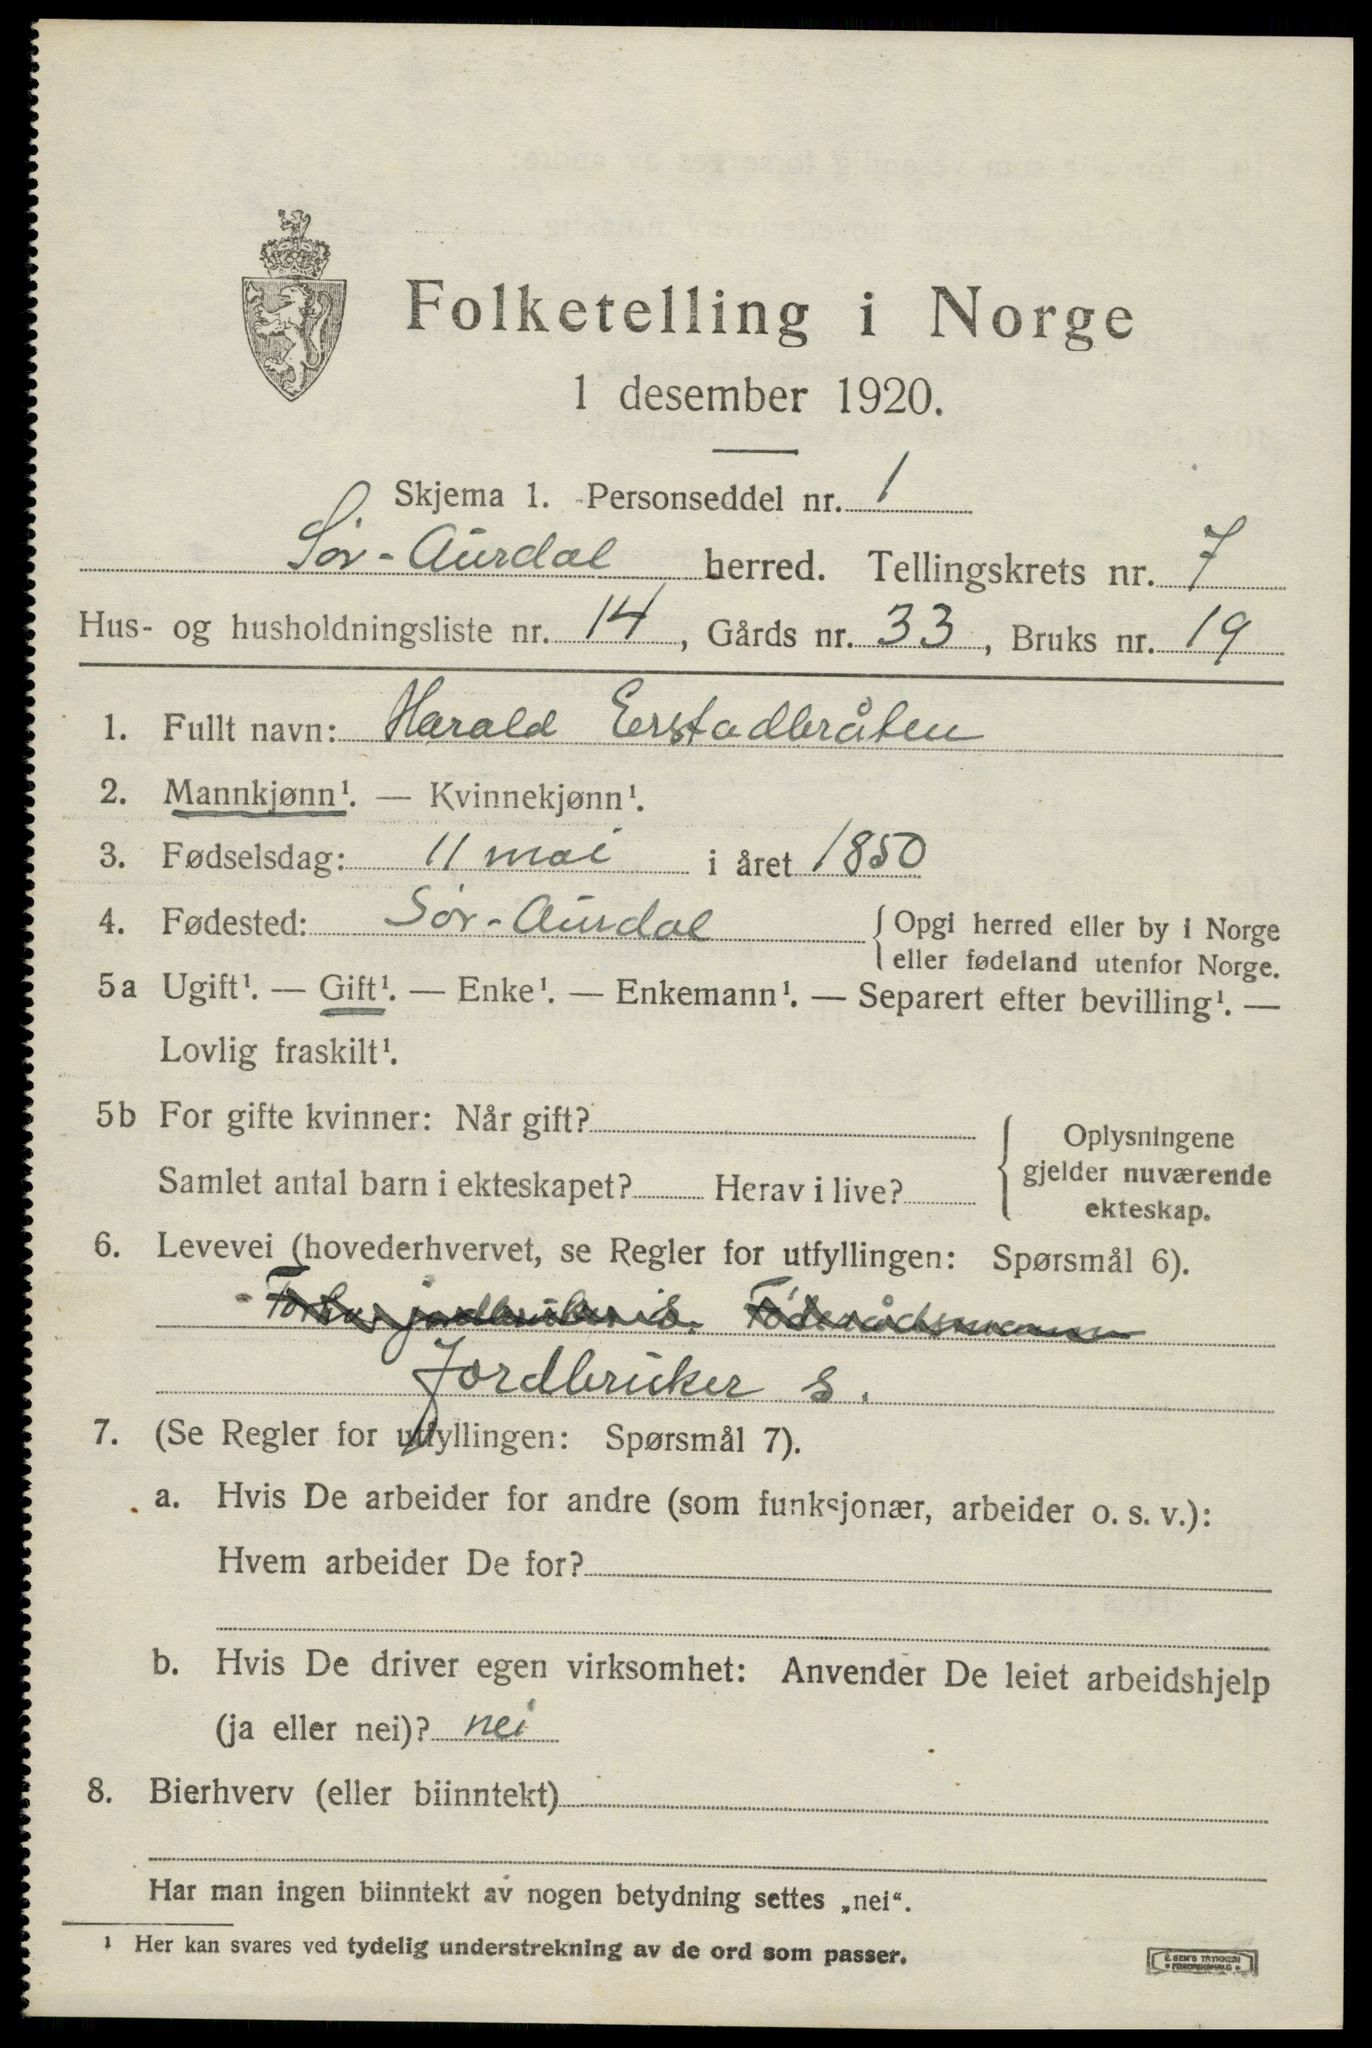 Folketelling i Norge
1 desember 1920.
Skjema 1. Personseddel nr. 1
Sør-Aurdal herred. Tellingskrets nr. 7
Hus- og husholdningsliste nr. 14, Gårds nr. 33, Bruks nr. 19
1. Fullt navn: Harald Erstadbråten
2. Mannkjønn¹. — Kvinnekjønn¹.
3. Fødselsdag: 11 mai i året 1850
4. Fødested: Sør-Aurdal { Opgi herred eller by i Norge
eller fødeland utenfor Norge.
5a Ugift¹. — Gift¹. — Enke¹. — Enkemann¹. — Separert efter bevilling¹. —
Lovlig fraskilt¹.
5b For gifte kvinner: Når gift?
Samlet antal barn i ekteskapet? Herav i live?
{ Oplysningene
gjelder nuværende
ekteskap.
6. Levevei (hovederhvervet, se Regler for utfyllingen: Spørsmål 6).
jordbruker s. Føderådsmann
Jordbruker s.
7. (Se Regler for utfyllingen: Spørsmål 7).
a. Hvis De arbeider for andre (som funksjonær, arbeider o. s. v.):
Hvem arbeider De for?
b. Hvis De driver egen virksomhet: Anvender De leiet arbeidshjelp
(ja eller nei)? nei
8. Bierhverv (eller biinntekt)
Har man ingen biinntekt av nogen betydning settes „nei“.
¹ Her kan svares ved tydelig understrekning av de ord som passer.